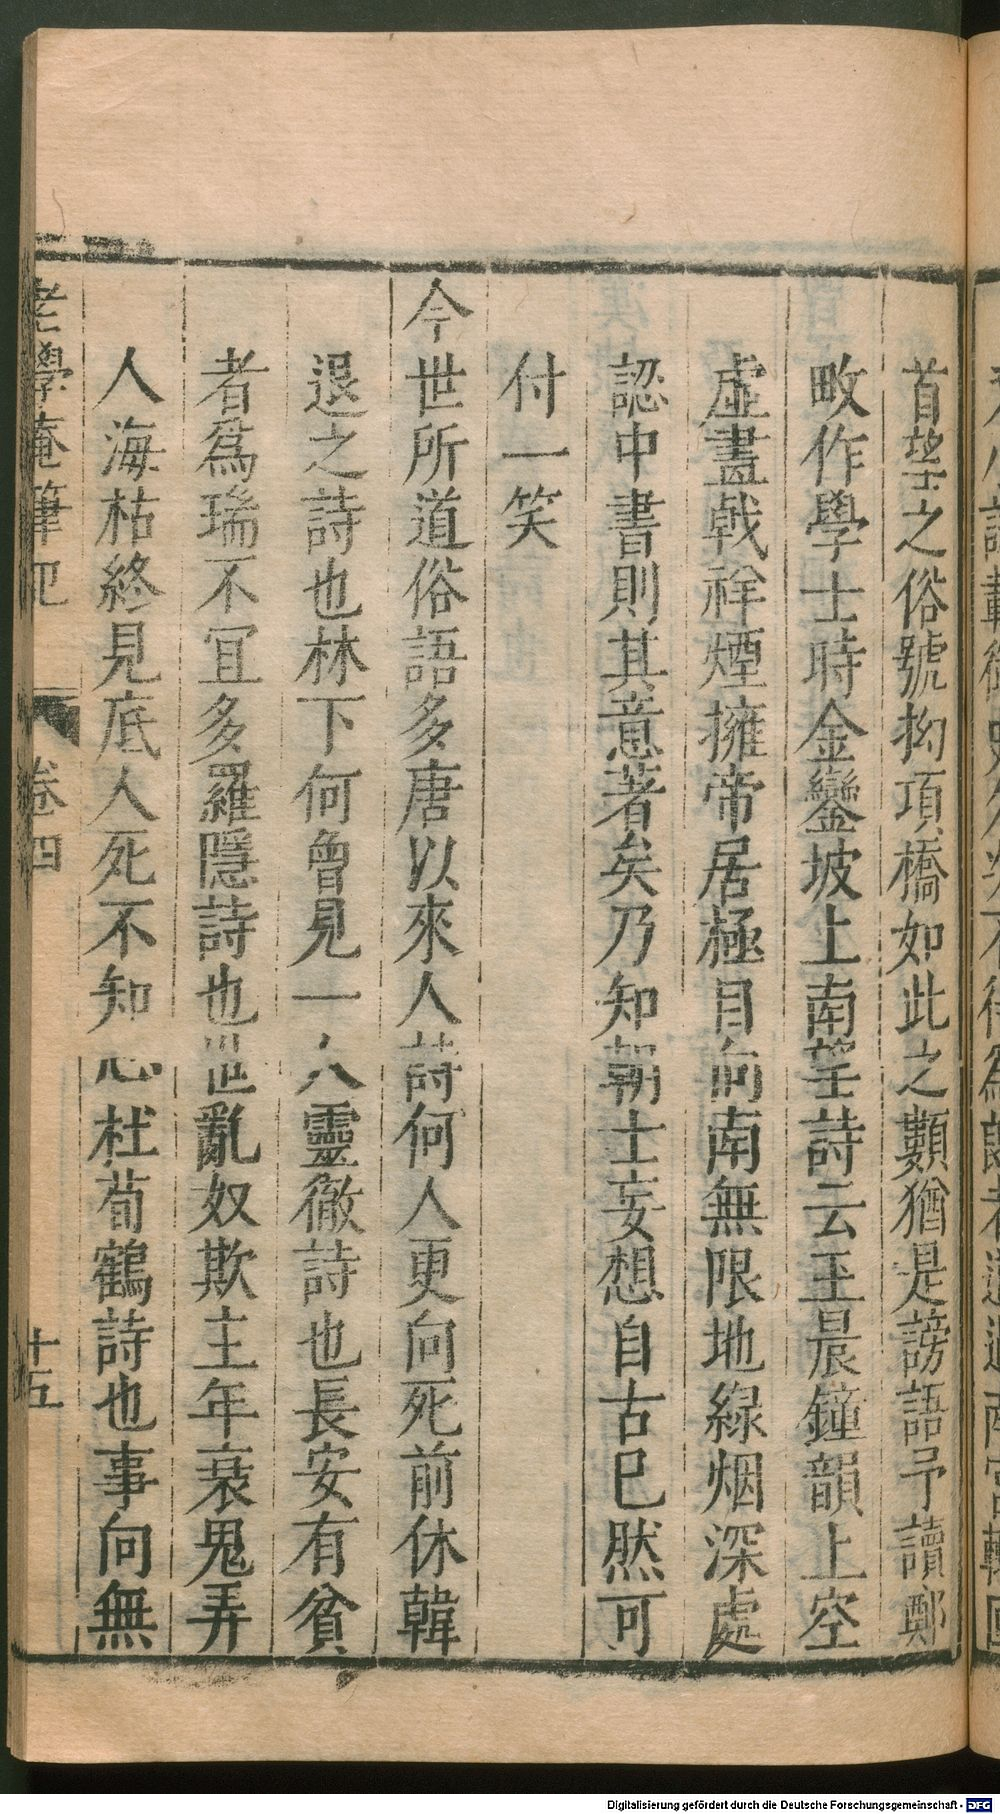 首望之俗號拗項橋如此之類猶是謗語予讀鄭
畋作學士時金鑾坡上南望詩云玉晨鐘韻上空
虛畫戟祥煙擁帝居極目向南無限地綠烟深處
認中書則其意著矣乃知朝士妄想自古已然可
付一笑
今世所道俗語多唐以來人詩何人更向死前休韓
退之詩也林下何曾見一人靈徹詩也長安有貧
者爲瑞不宜多羅隱詩也世亂奴欺主年衰鬼弄
人海枯終見底人死不知心杜荀鶴詩也事向無
老學庵筆記 卷四 十五
Digitalisierung gefördert durch die Deutsche Forschungsgemeinschaft - DFG